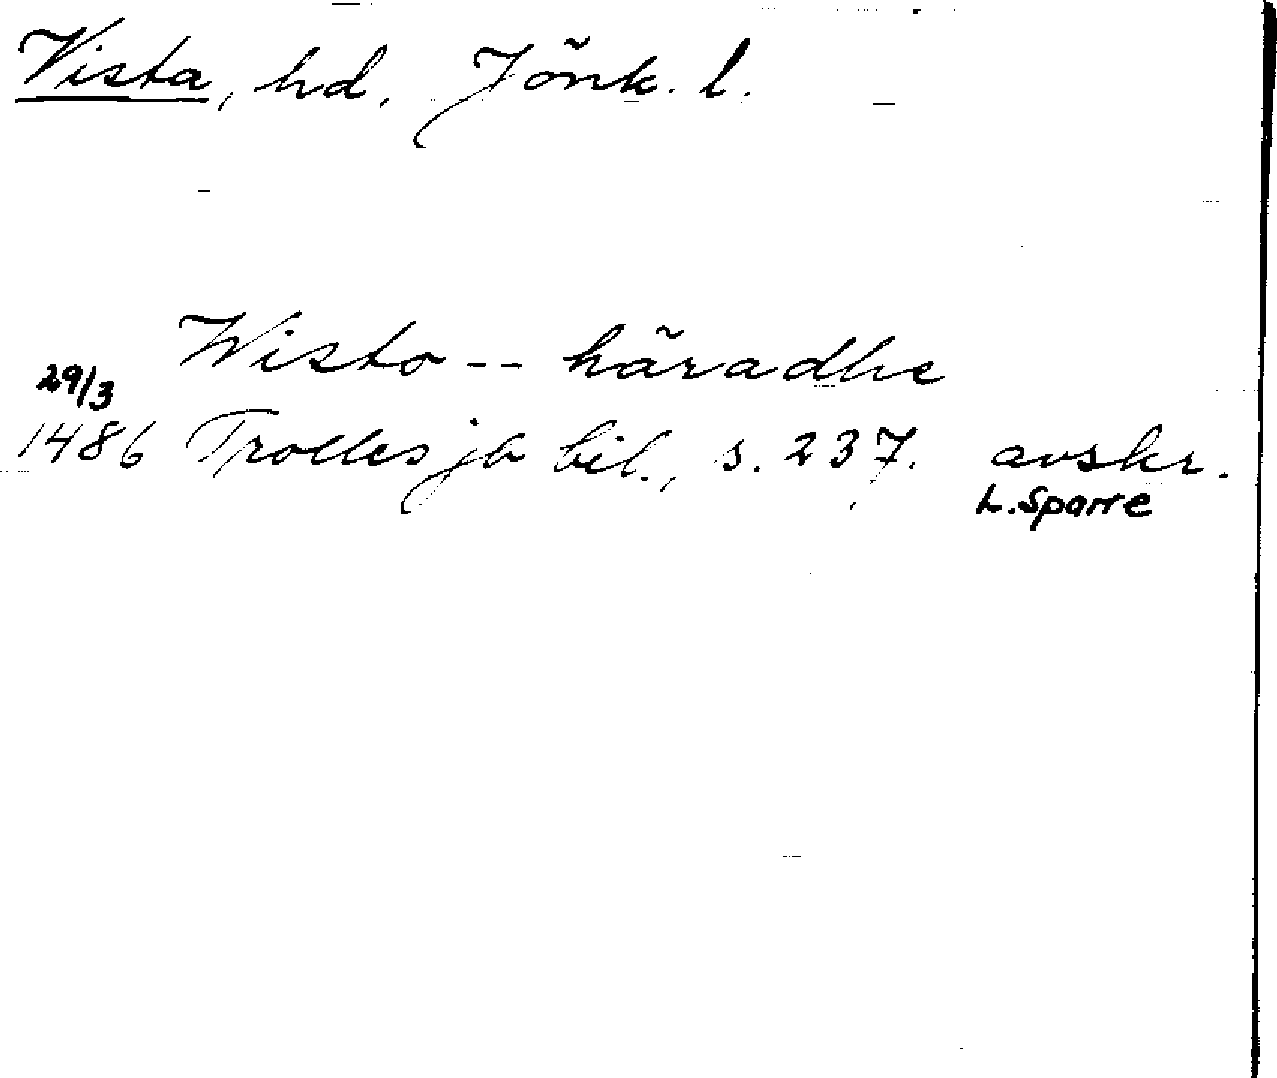 Vista, hd. Jönk. l.
Wisto -- häradhe
29/3
1486 Trolles jb bil., s. 237. avskr.
L. Sparre